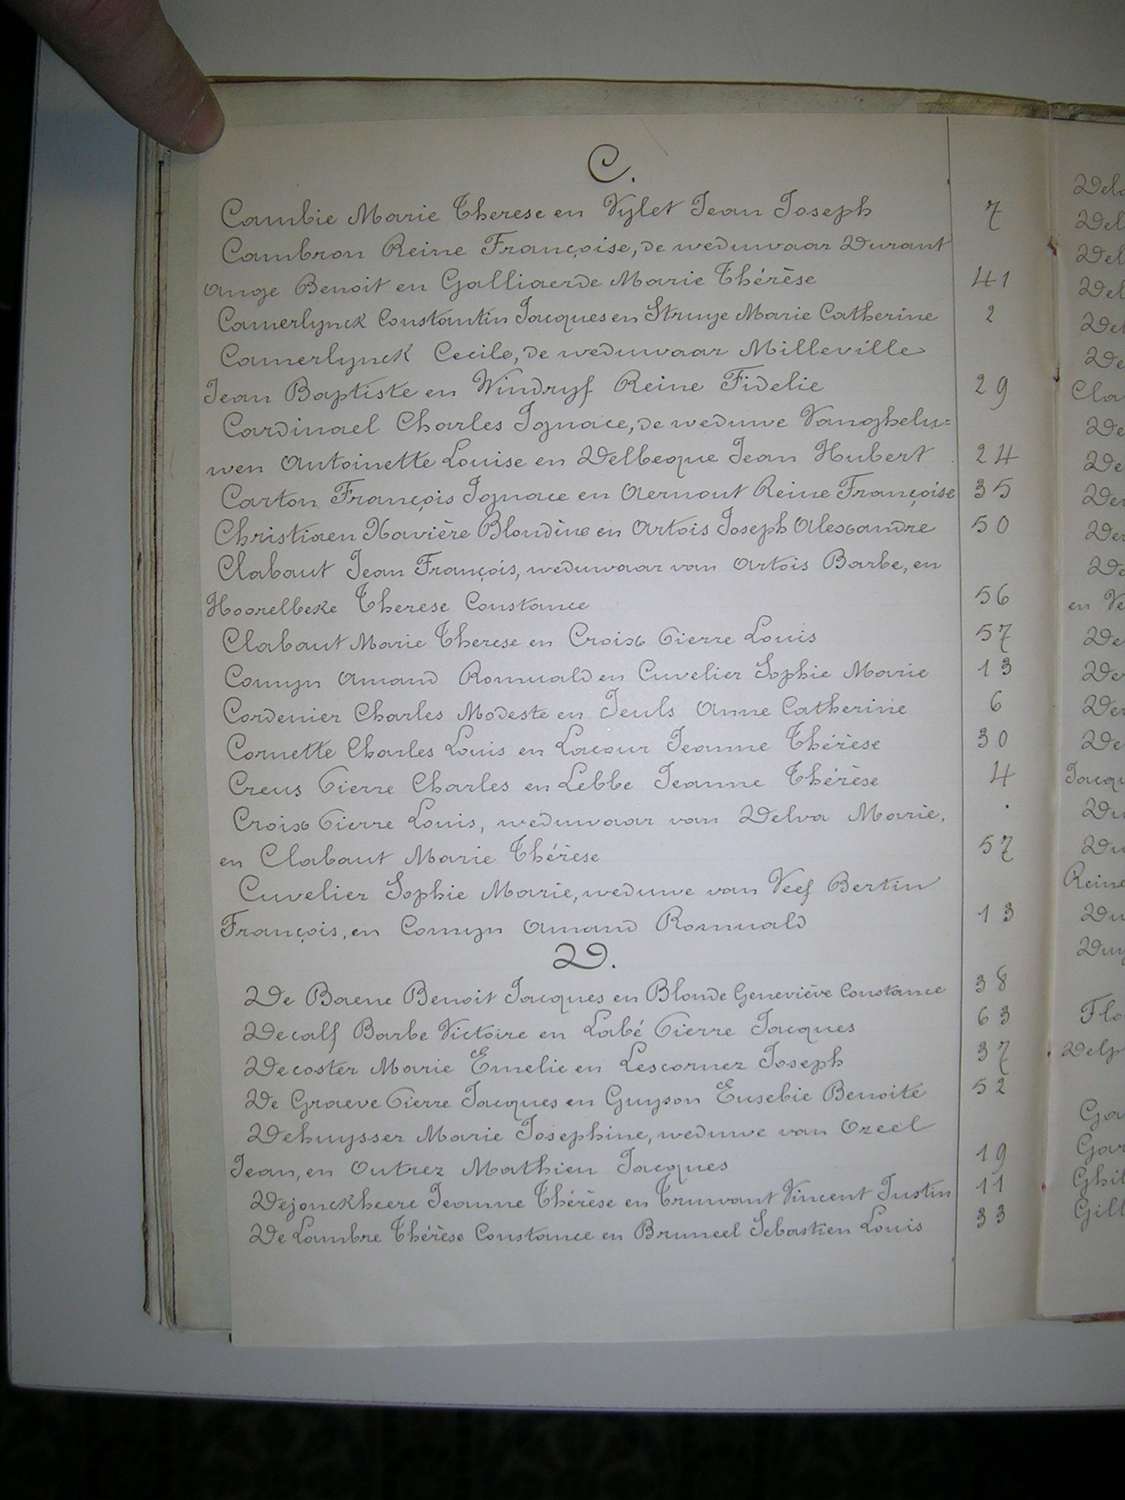 C.
Cambie Marie Therese en Vylet Jean Joseph 7
Cambron Reine Françoise, de weduwaar Durant
Ange Benoit en Galliaerde Marie Thérèse 41
Camerlynck Constantin Jacques en Struye Marie Catherine 2
Camerlynck Cecile, de weduwaar Milleville
Jean Baptiste en Windryf Reine Fidelie 29
Cardinael Charles Ignace, de weduwe Vanghelu=
wen Antoinette Louise en Delbecque Jean Hubert 24
Carton François Ignace en Aernout Reine Françoise 35
Christiaen Xavière Blondine en Artois Joseph Alexandre 50
Clabaut Jean François, weduwaar van Artois Barbe, en
Hoorelbeke Therese Constance 56
Clabaut Marie Therese en Croix Pierre Louis 57
Comyn Amand Romuald en Cuvelier Sophie Marie 13
Cordenier Charles Modeste en Jeuls Anne Catherine 6
Cornette Charles Louis en Lacour Jeanne Thérèse 30
Creus Pierre Charles en Lebbe Jeanne Thérèse 4
Croix Pierre Louis, weduwaar van Delva Marie,
en Clabaut Marie Thérèse 57
Cuvelier Sophie Marie, weduwe van Veef Bertin
François, en Comyn Amand Romuald 13
D.
De Baene Benoit Jacques en Blonde Geneviève Constance 38
Decalf Barbe Victoire en Labé Pierre Jacques 63
Decoster Marie Emelie en Lescornez Joseph 37
De Graeve Pierre Jacques en Guyson Eusebie Benoite 52
Dehuysser Marie Josephine, weduwe van Ozeel
Jean, en Outrez Mathieu Jacques 19
Dejonckheere Jeanne Thérèse en Truwant Vincent Justin 11
De Lambre Thérèse Constance en Bruneel Sebastien Louis 33